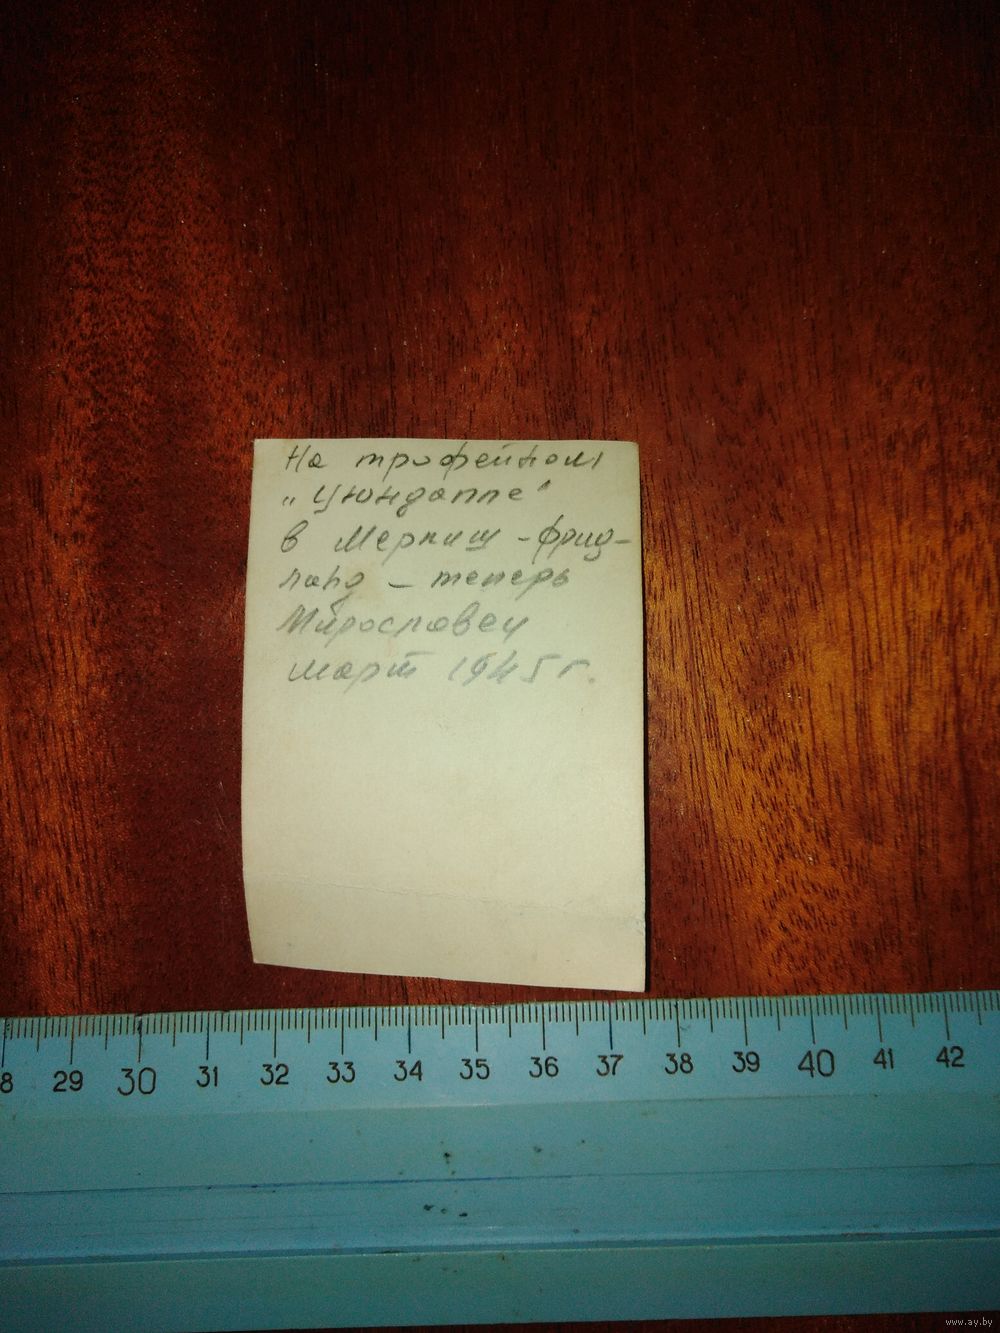 На трофейном
„Цюндаппе"
в Меркиш-фрид-
ланд - теперь
Мирославец
март 1945 г.
28 29 30 31 32 33 34 35 36 37 38 39 40 41 42
www.ay.by